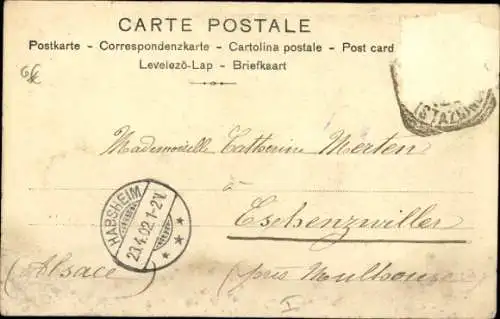 CARTE POSTALE
Postkarte - Correspondenzkarte - Cartolina postale - Post card
Levelező-Lap - Briefkaart
(STAZIONE
Mademoiselle Catherine Merten
à
Eschenzwiller
HABSHEIM
23.4.02.1-2N.
(Alsace) (près Mulhouse
I